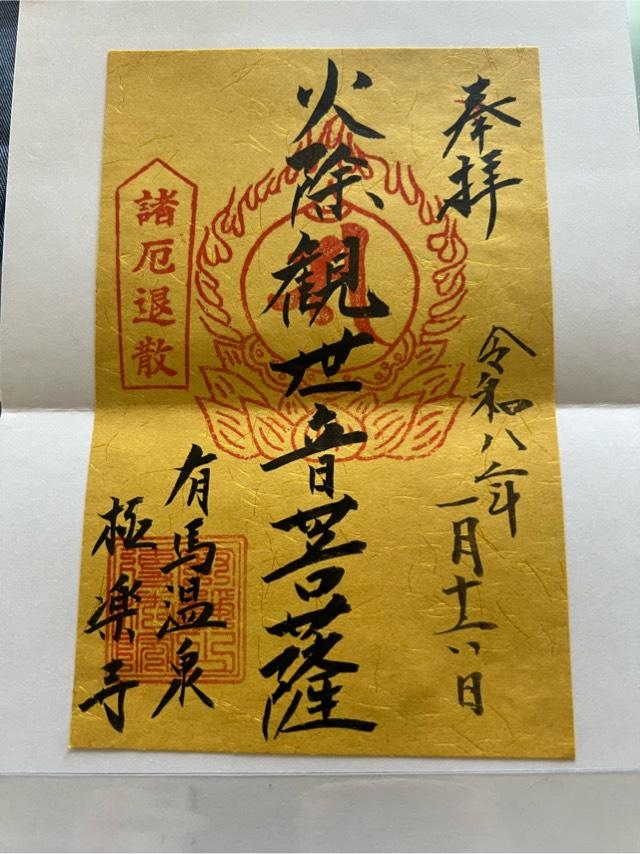 奉拝
令和八年一月十六日
火除観世音菩薩
諸厄退散
有馬温泉
極楽寺